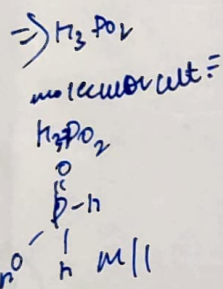 ⇒ H3PO2
molecular wt:
H3PO2
O
P-H
HO H M//